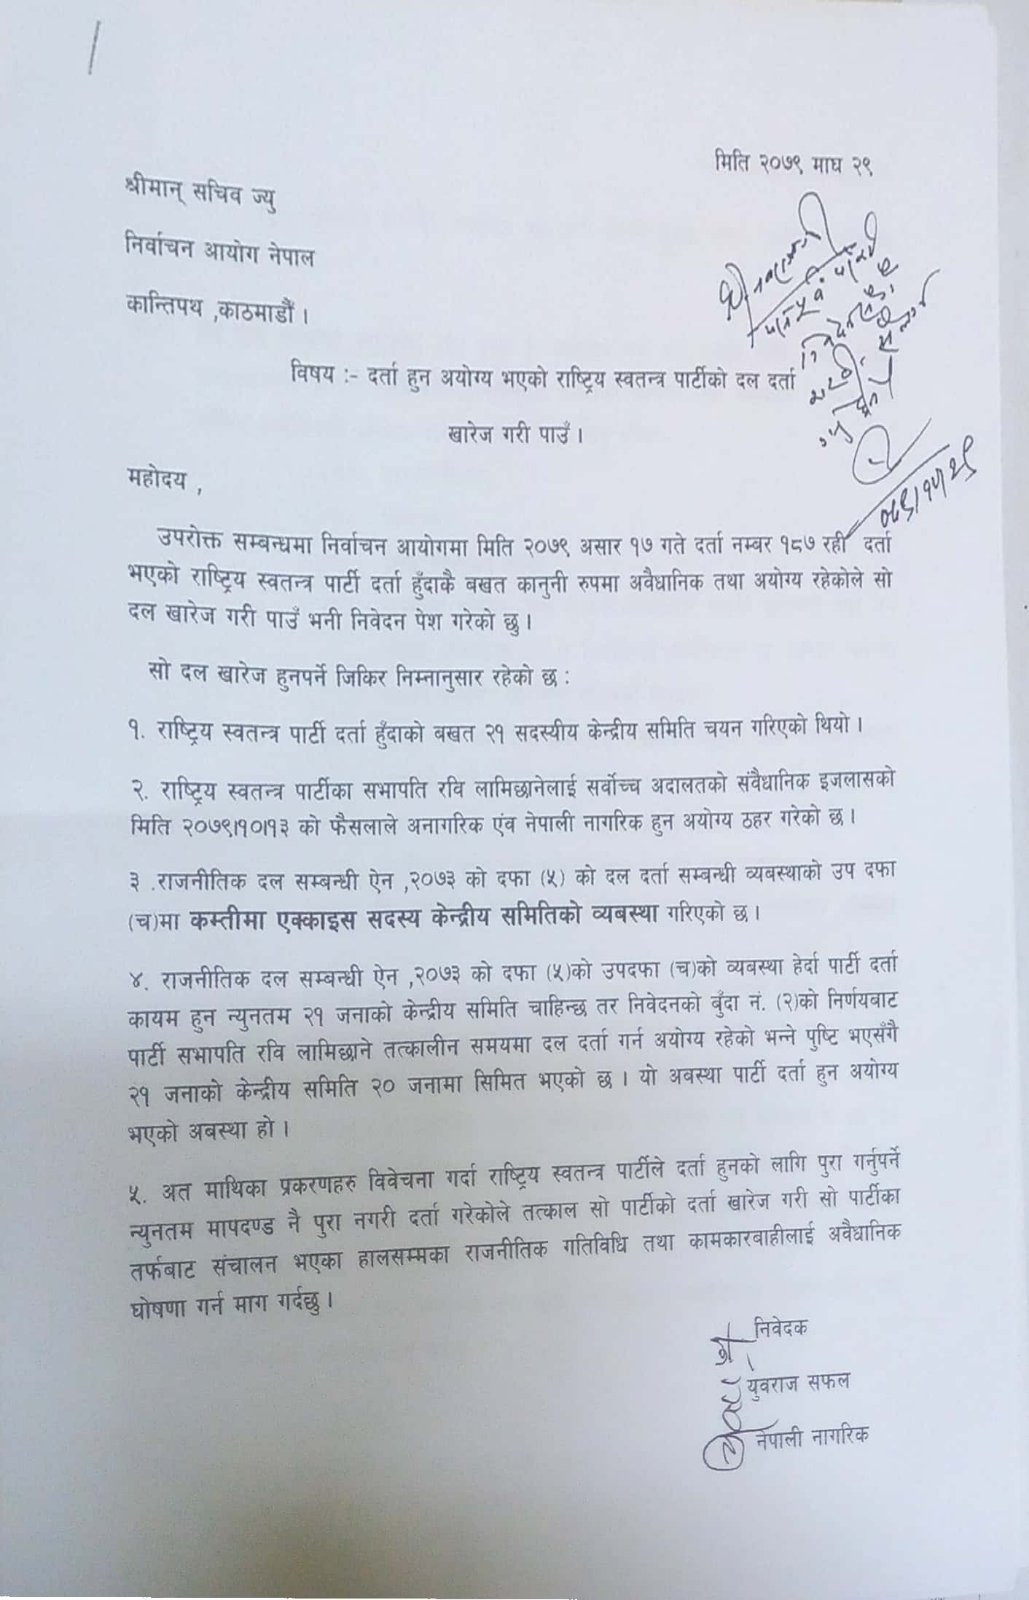 मिति २०७९ माघ २९
श्रीमान् सचिव ज्यु
निर्वाचन आयोग नेपाल
कान्तिपथ ,काठमाडौं ।
विषय :- दर्ता हुन अयोग्य भएको राष्ट्रिय स्वतन्त्र पार्टीको दल दर्ता
खारेज गरी पाउँ ।
महोदय ,
उपरोक्त सम्बन्धमा निर्वाचन आयोगमा मिति २०७९ असार १७ गते दर्ता नम्बर १८७ रही दर्ता
भएको राष्ट्रिय स्वतन्त्र पार्टी दर्ता हुँदाकै बखत कानुनी रुपमा अवैधानिक तथा अयोग्य रहेकोले सो
दल खारेज गरी पाउँ भनी निवेदन पेश गरेको छु ।
सो दल खारेज हुनपर्ने जिकिर निम्नानुसार रहेको छ :
१. राष्ट्रिय स्वतन्त्र पार्टी दर्ता हुँदाको बखत २१ सदस्यीय केन्द्रीय समिति चयन गरिएको थियो ।
२. राष्ट्रिय स्वतन्त्र पार्टीका सभापति रवि लामिछानेलाई सर्वोच्च अदालतको संवैधानिक इजलासको
मिति २०७९।१०।१३ को फैसलाले अनागरिक एंव नेपाली नागरिक हुन अयोग्य ठहर गरेको छ ।
३ .राजनीतिक दल सम्बन्धी ऐन ,२०७३ को दफा (५) को दल दर्ता सम्बन्धी व्यबस्थाको उप दफा
(च)मा कम्तीमा एक्काइस सदस्य केन्द्रीय समितिको व्यबस्था गरिएको छ ।
४. राजनीतिक दल सम्बन्धी ऐन ,२०७३ को दफा (५)को उपदफा (च)को व्यबस्था हेर्दा पार्टी दर्ता
कायम हुन न्युनतम २१ जनाको केन्द्रीय समिति चाहिन्छ तर निवेदनको बुँदा नं. (२)को निर्णयबाट
पार्टी सभापति रवि लामिछाने तत्कालीन समयमा दल दर्ता गर्न अयोग्य रहेको भन्ने पुष्टि भएसँगै
२१ जनाको केन्द्रीय समिति २० जनामा सिमित भएको छ । यो अबस्था पार्टी दर्ता हुन अयोग्य
भएको अबस्था हो ।
५. अत माथिका प्रकरणहरु विवेचना गर्दा राष्ट्रिय स्वतन्त्र पार्टीले दर्ता हुनको लागि पुरा गर्नुपर्ने
न्युनतम मापदण्ड नै पुरा नगरी दर्ता गरेकोले तत्काल सो पार्टीको दर्ता खारेज गरी सो पार्टीका
तर्फबाट संचालन भएका हालसम्मका राजनीतिक गतिविधि तथा कामकारबाहीलाई अवैधानिक
घोषणा गर्न माग गर्दछु ।
निवेदक
युवराज सफल
नेपाली नागरिक